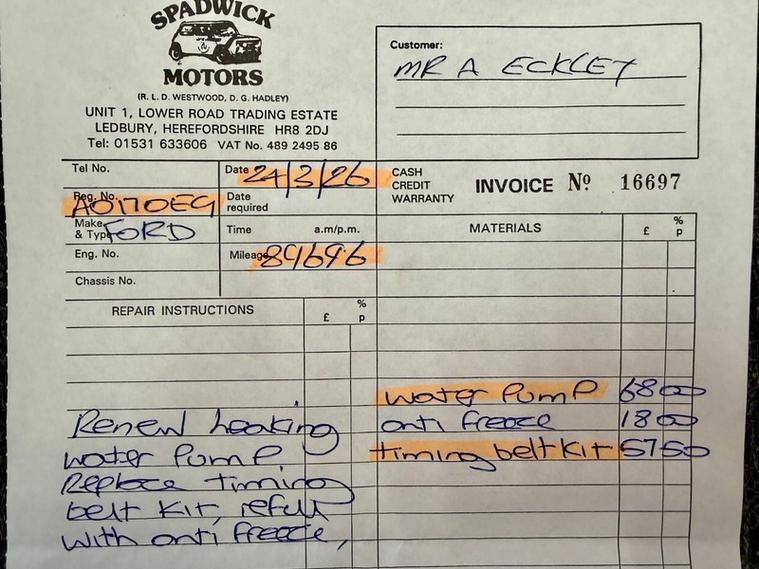 SPADWICK
MOTORS
(R. L. D. WESTWOOD, D. G. HADLEY)
UNIT 1, LOWER ROAD TRADING ESTATE
LEDBURY, HEREFORDSHIRE HR8 2DJ
Tel: 01531 633606 VAT No. 489 2495 86
Customer:
MR A ECKLEY
Tel No.
Date 24/3/26
CASH
CREDIT
WARRANTY
INVOICE No 16697
Reg. No. AO17OEG
Date required
Make & Type FORD
Time a.m/p.m.
Eng. No.
Mileage 89696
Chassis No.
MATERIALS £ % p
REPAIR INSTRUCTIONS £ % p
water Pump 68 00
anti freeze 18 00
timing belt kit 57 50
Renew Leaking
water Pump.
Replace timing
belt kit, refill
with anti freeze,